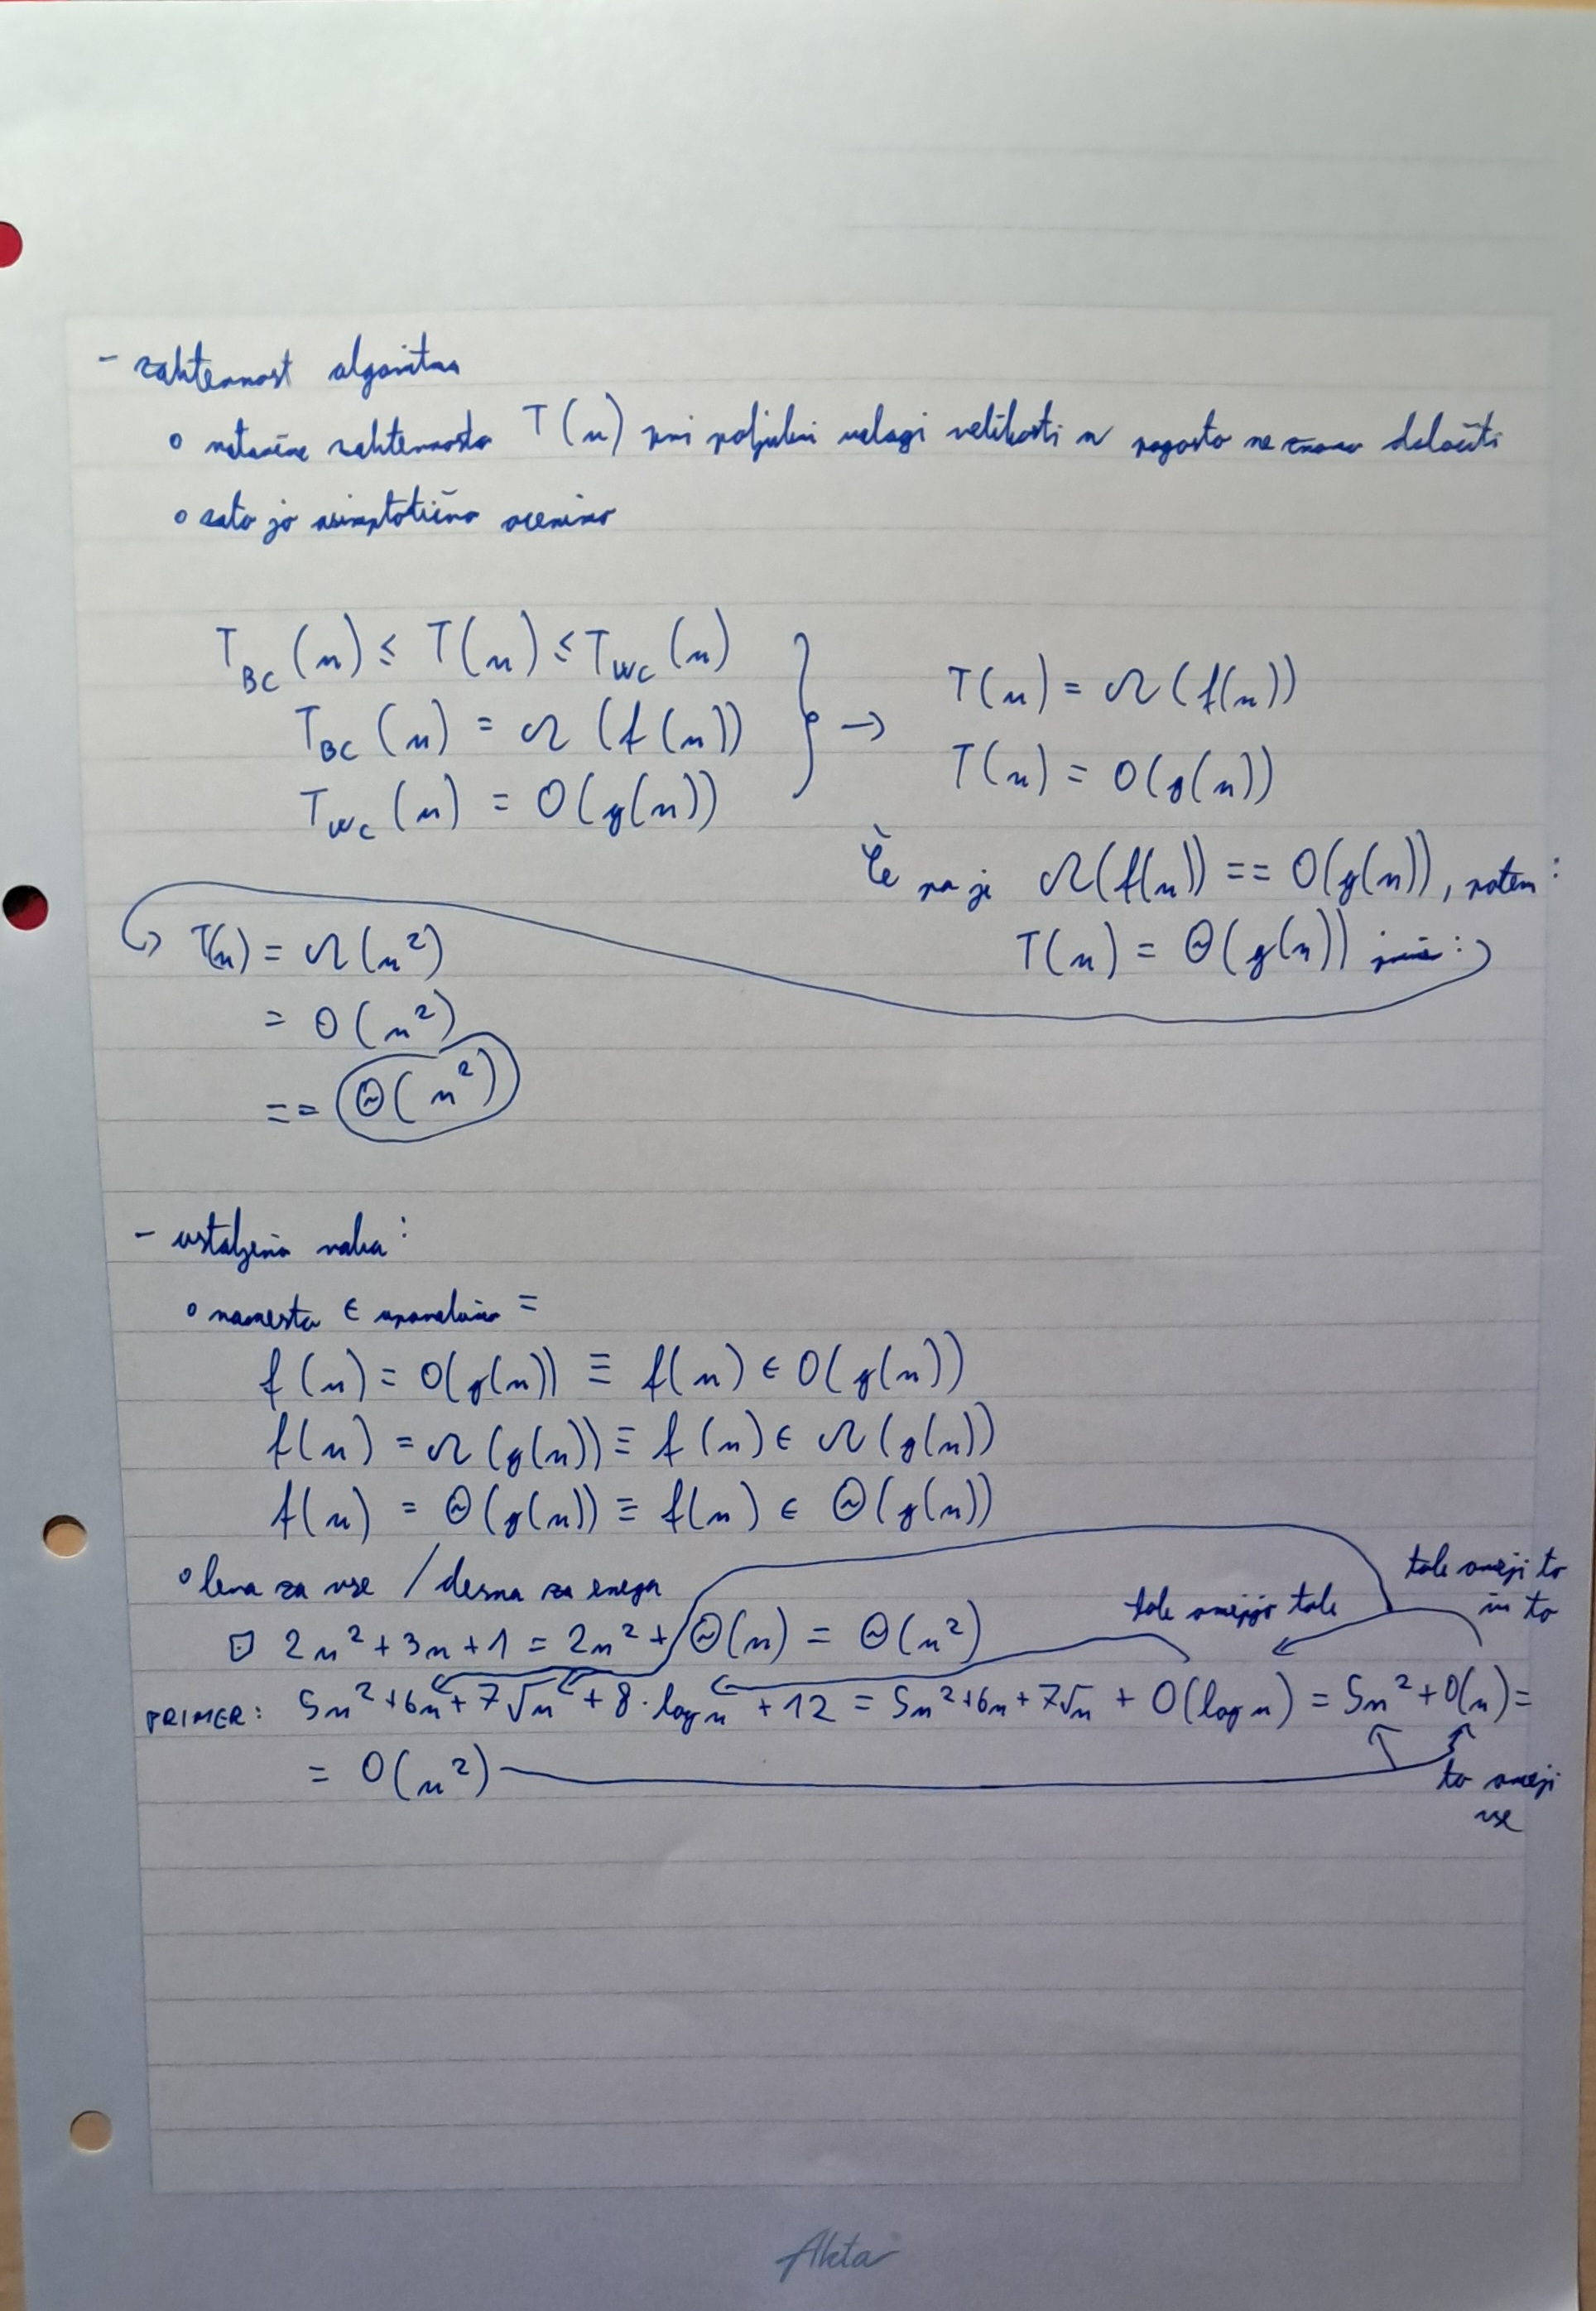 - zahtevnost algoritma
o natančne zahtevnosti T(n) pri poljubni nalogi velikosti n pogosto ne znamo določiti
o zato jo asimptotično ocenimo
T_BC(n) ≤ T(n) ≤ T_WC(n)
T_BC(n) = Ω(f(n))
T_WC(n) = O(g(n))
} → T(n) = Ω(f(n))
T(n) = O(g(n))
Če pa je Ω(f(n)) == O(g(n)), potem:
T(n) = Θ(g(n))
T(n) = Ω(n²)
= O(n²)
== Θ(n²)
- ustaljena raba:
o namesto ∈ uporabimo =
f(n) = O(g(n)) ≡ f(n) ∈ O(g(n))
f(n) = Ω(g(n)) ≡ f(n) ∈ Ω(g(n))
f(n) = Θ(g(n)) ≡ f(n) ∈ Θ(g(n))
o leva za vse / desna za enega
tale omeji to
in to
tale omejijo tale
▫ 2n² + 3n + 1 = 2n² + Θ(n) = Θ(n²)
PRIMER: 5n² + 6n + 7√n + 8·log n + 12 = 5n² + 6n + 7√n + O(log n) = 5n² + O(n) =
= O(n²)
to omeji
vse
Akta